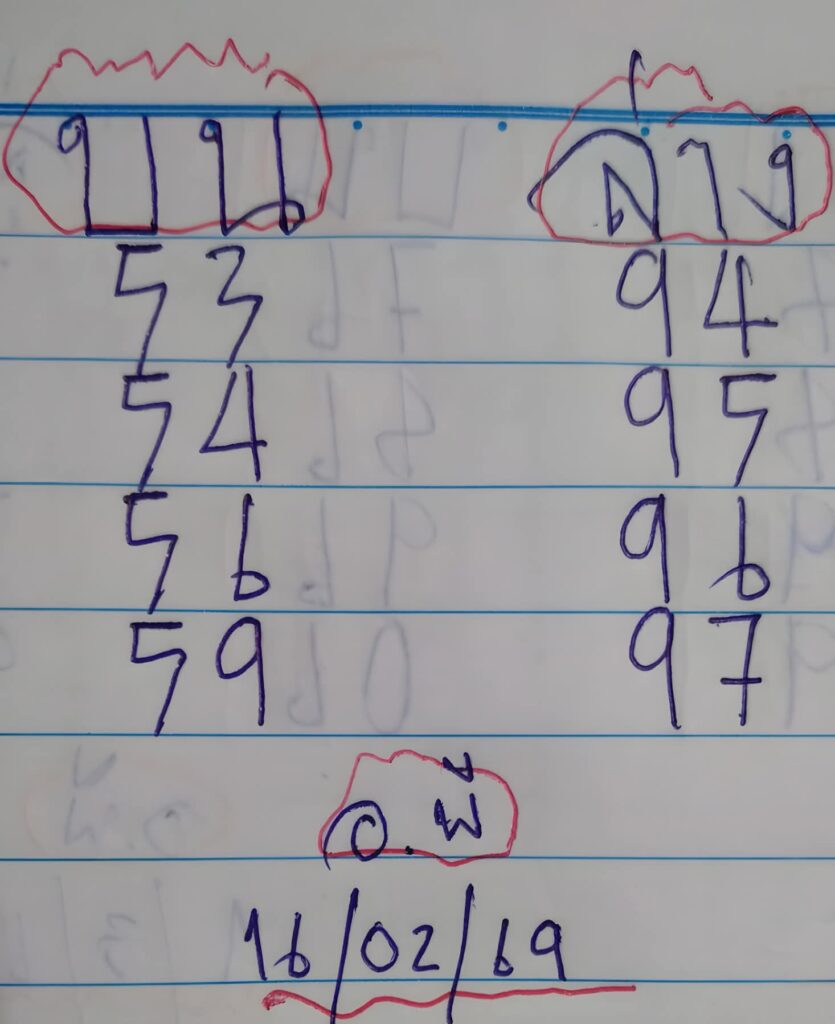 บน ล่าง
53 94
54 95
56 96
59 97
16/02/69